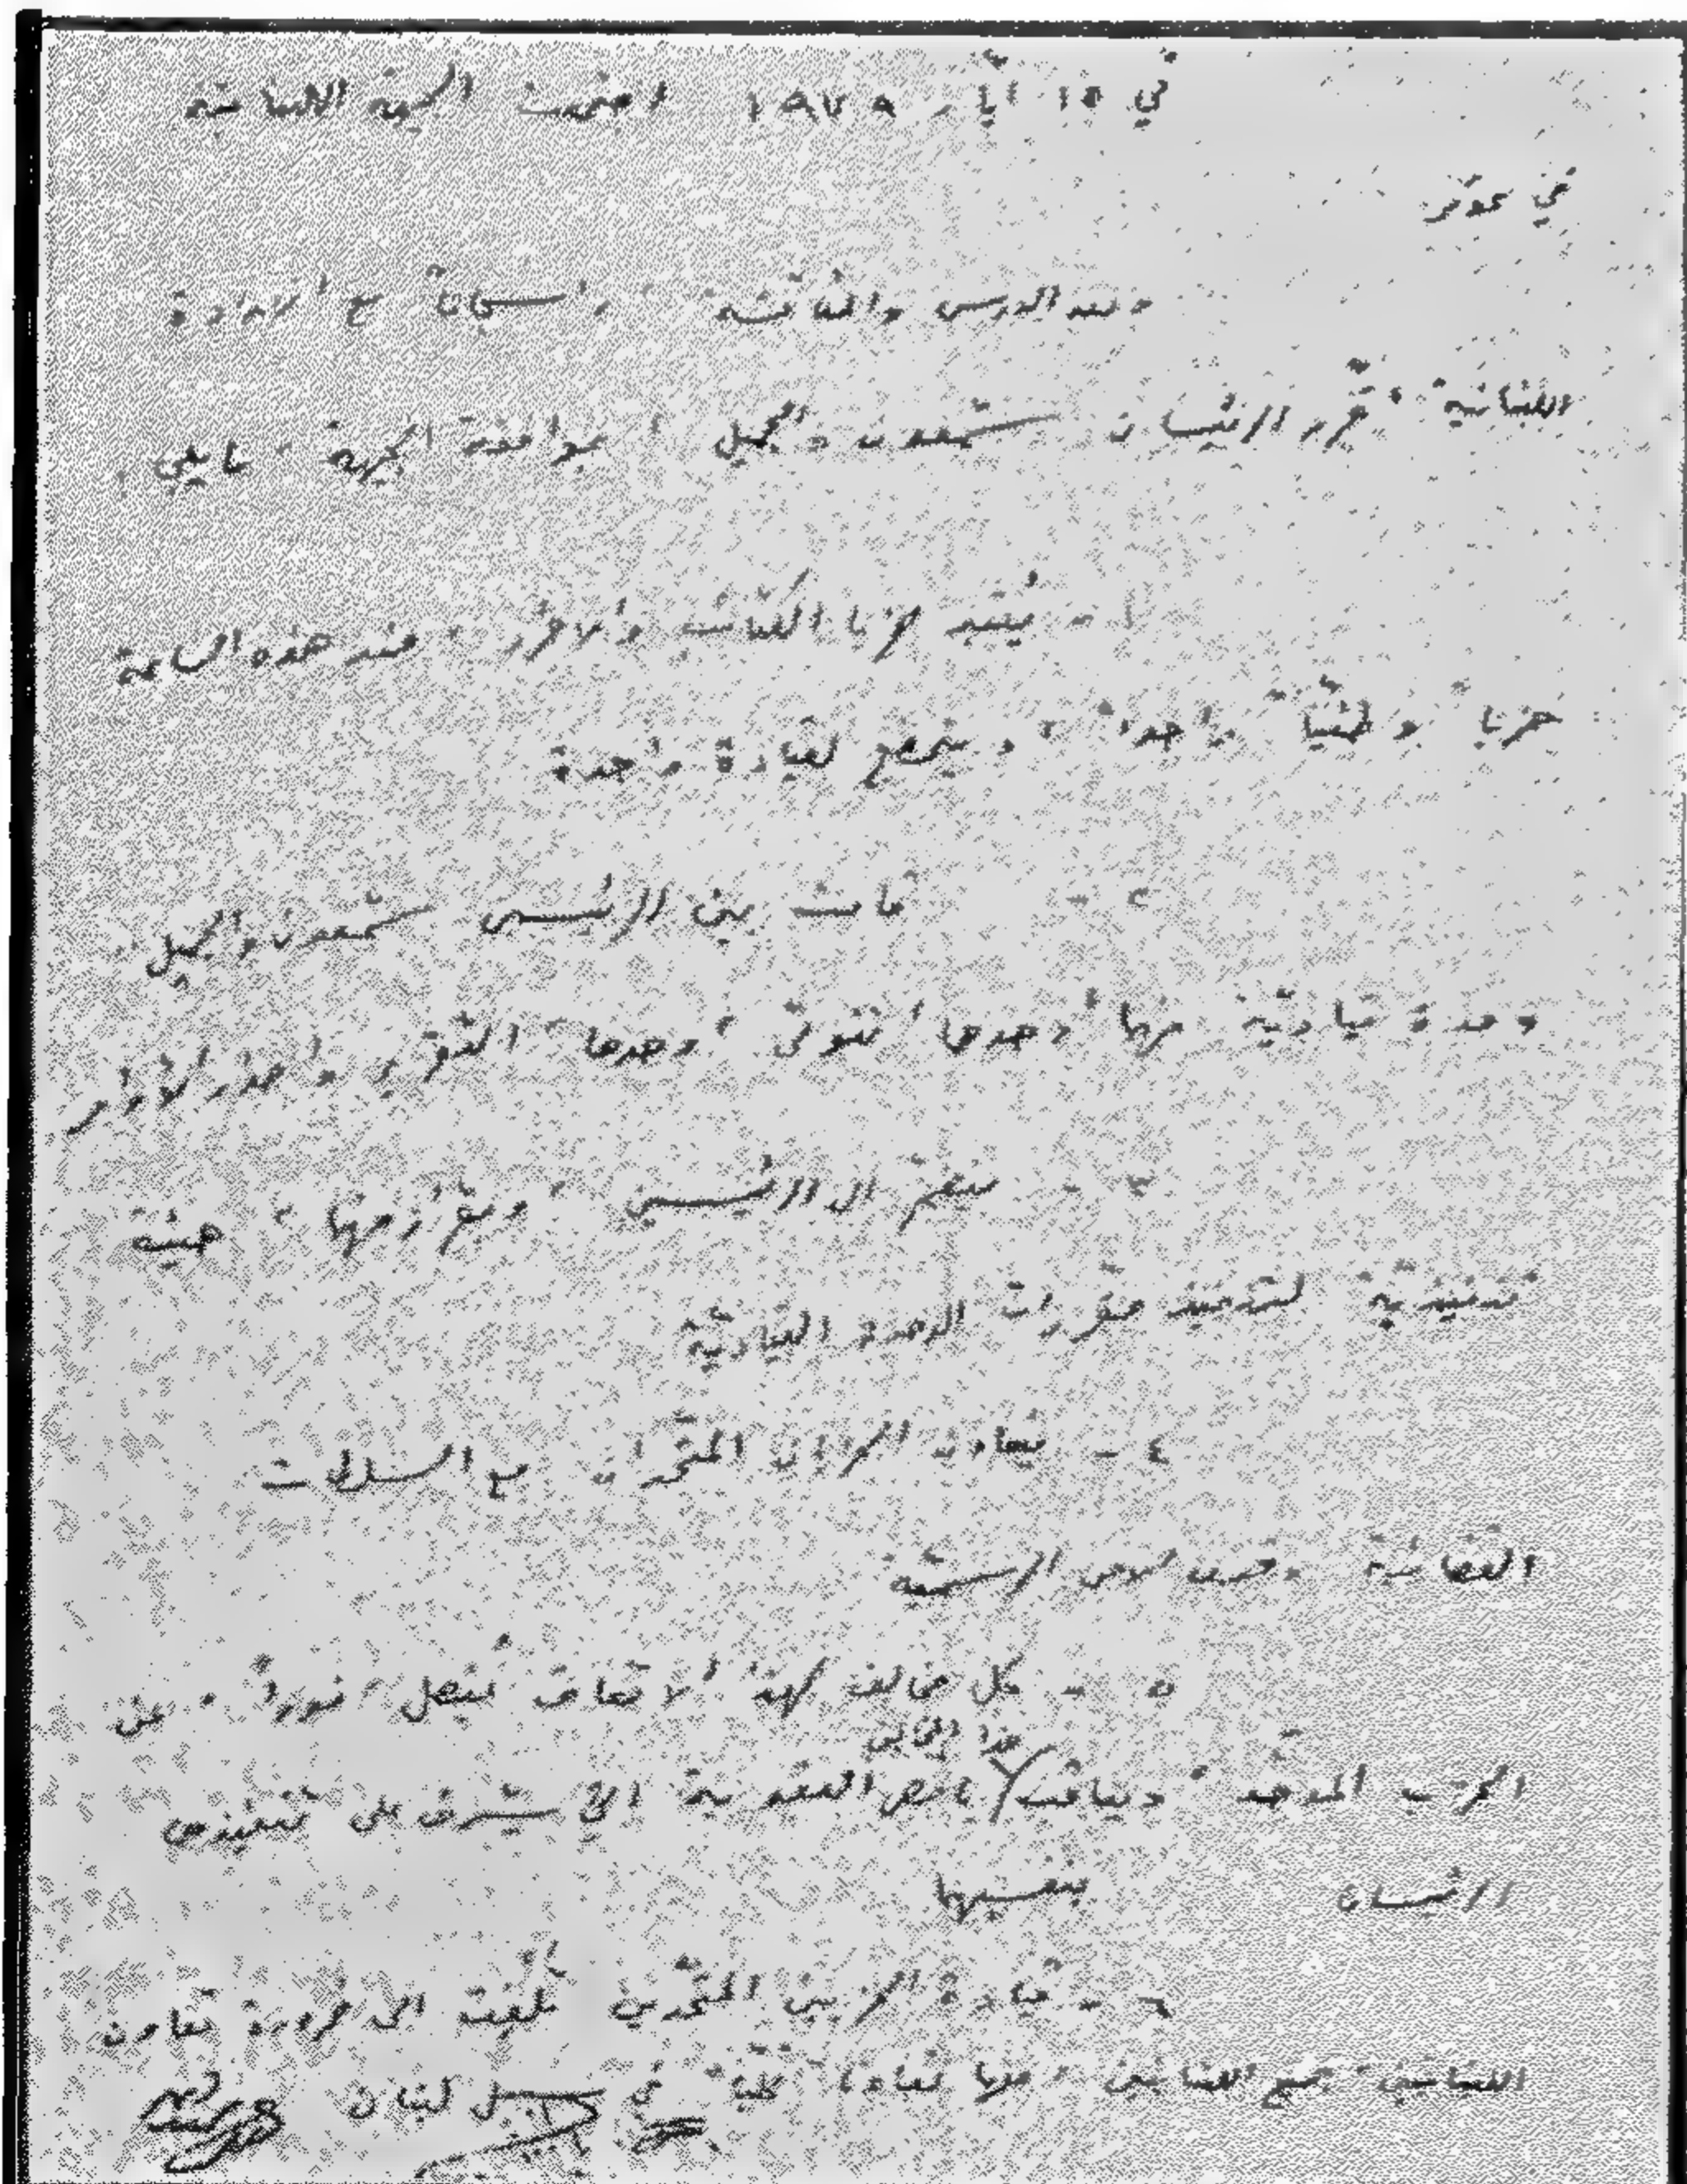 في ١٥ أيار ١٩٧٩ اجتمعت الجبهة اللبنانية
في عوكر
وبعد الدرس والمناقشة، وانسجاماً مع الارادة
اللبنانية، قرر الرئيسان شمعون والجميل، بموافقة الجبهة، ما يلي:
١ - يعتبر حزبا الكتائب والاحرار، منذ هذه الساعة
حزباً وطنياً واحداً، ويخضع لقيادة واحدة
٢ - قامت بين الرئيسين شمعون والجميل
وحدة قيادية لها وحدها تتولى، وحدها، التقرير واصدار الأوامر
٣ - تنضم الى الرئيسين، وبمؤازرتهما، هيئة
تنفيذية لتنفيذ مقررات الوحدة القيادية
٤ - يتعاون الحزبان المتحدان مع السلطات
القضائية وقوى الامن الرسمية
٥ - كل مخالف لهذا الاتفاق يفصل، فوراً، عن
هذا المخالف
الحزب الموحد، ويعاقب باقصى العقوبة التي يشرف على تنفيذها
الرئيسان بنفسيهما
٦ - قيادة الحزبين المتحدين تلفت الى ضرورة تعاون
اللبنانيين، جميع اللبنانيين، معها تعاوناً كلياً في سبيل لبنان